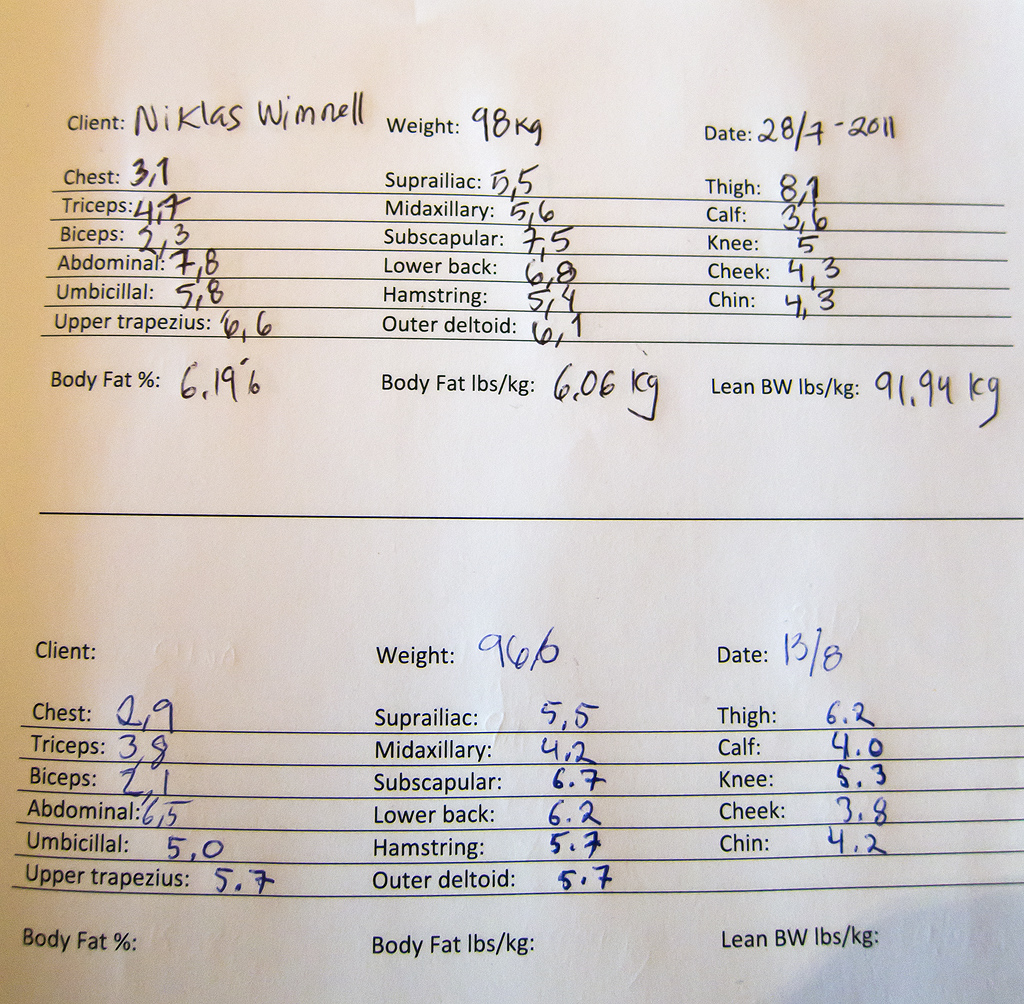 Client: Niklas Wimnell Weight: 98 kg Date: 28/7-2011
Chest: 3,1 Suprailiac: 5,5 Thigh: 8,1
Triceps: 4,7 Midaxillary: 5,6 Calf: 3,6
Biceps: 2,3 Subscapular: 7,5 Knee: 5
Abdominal: 7,8 Lower back: 6,8 Cheek: 4,3
Umbicillal: 5,8 Hamstring: 5,4 Chin: 4,3
Upper trapezius: 6,6 Outer deltoid: 6,1
Body Fat %: 6.19% Body Fat lbs/kg: 6.06 kg Lean BW lbs/kg: 91,94 kg
Client: Weight: 96,6 Date: 13/8
Chest: 2,9 Suprailiac: 5,5 Thigh: 6.2
Triceps: 3,8 Midaxillary: 4,2 Calf: 4.0
Biceps: 2,1 Subscapular: 6.7 Knee: 5.3
Abdominal: 6,5 Lower back: 6.2 Cheek: 3.8
Umbicillal: 5,0 Hamstring: 5.7 Chin: 4.2
Upper trapezius: 5.7 Outer deltoid: 5.7
Body Fat %: Body Fat lbs/kg: Lean BW lbs/kg: